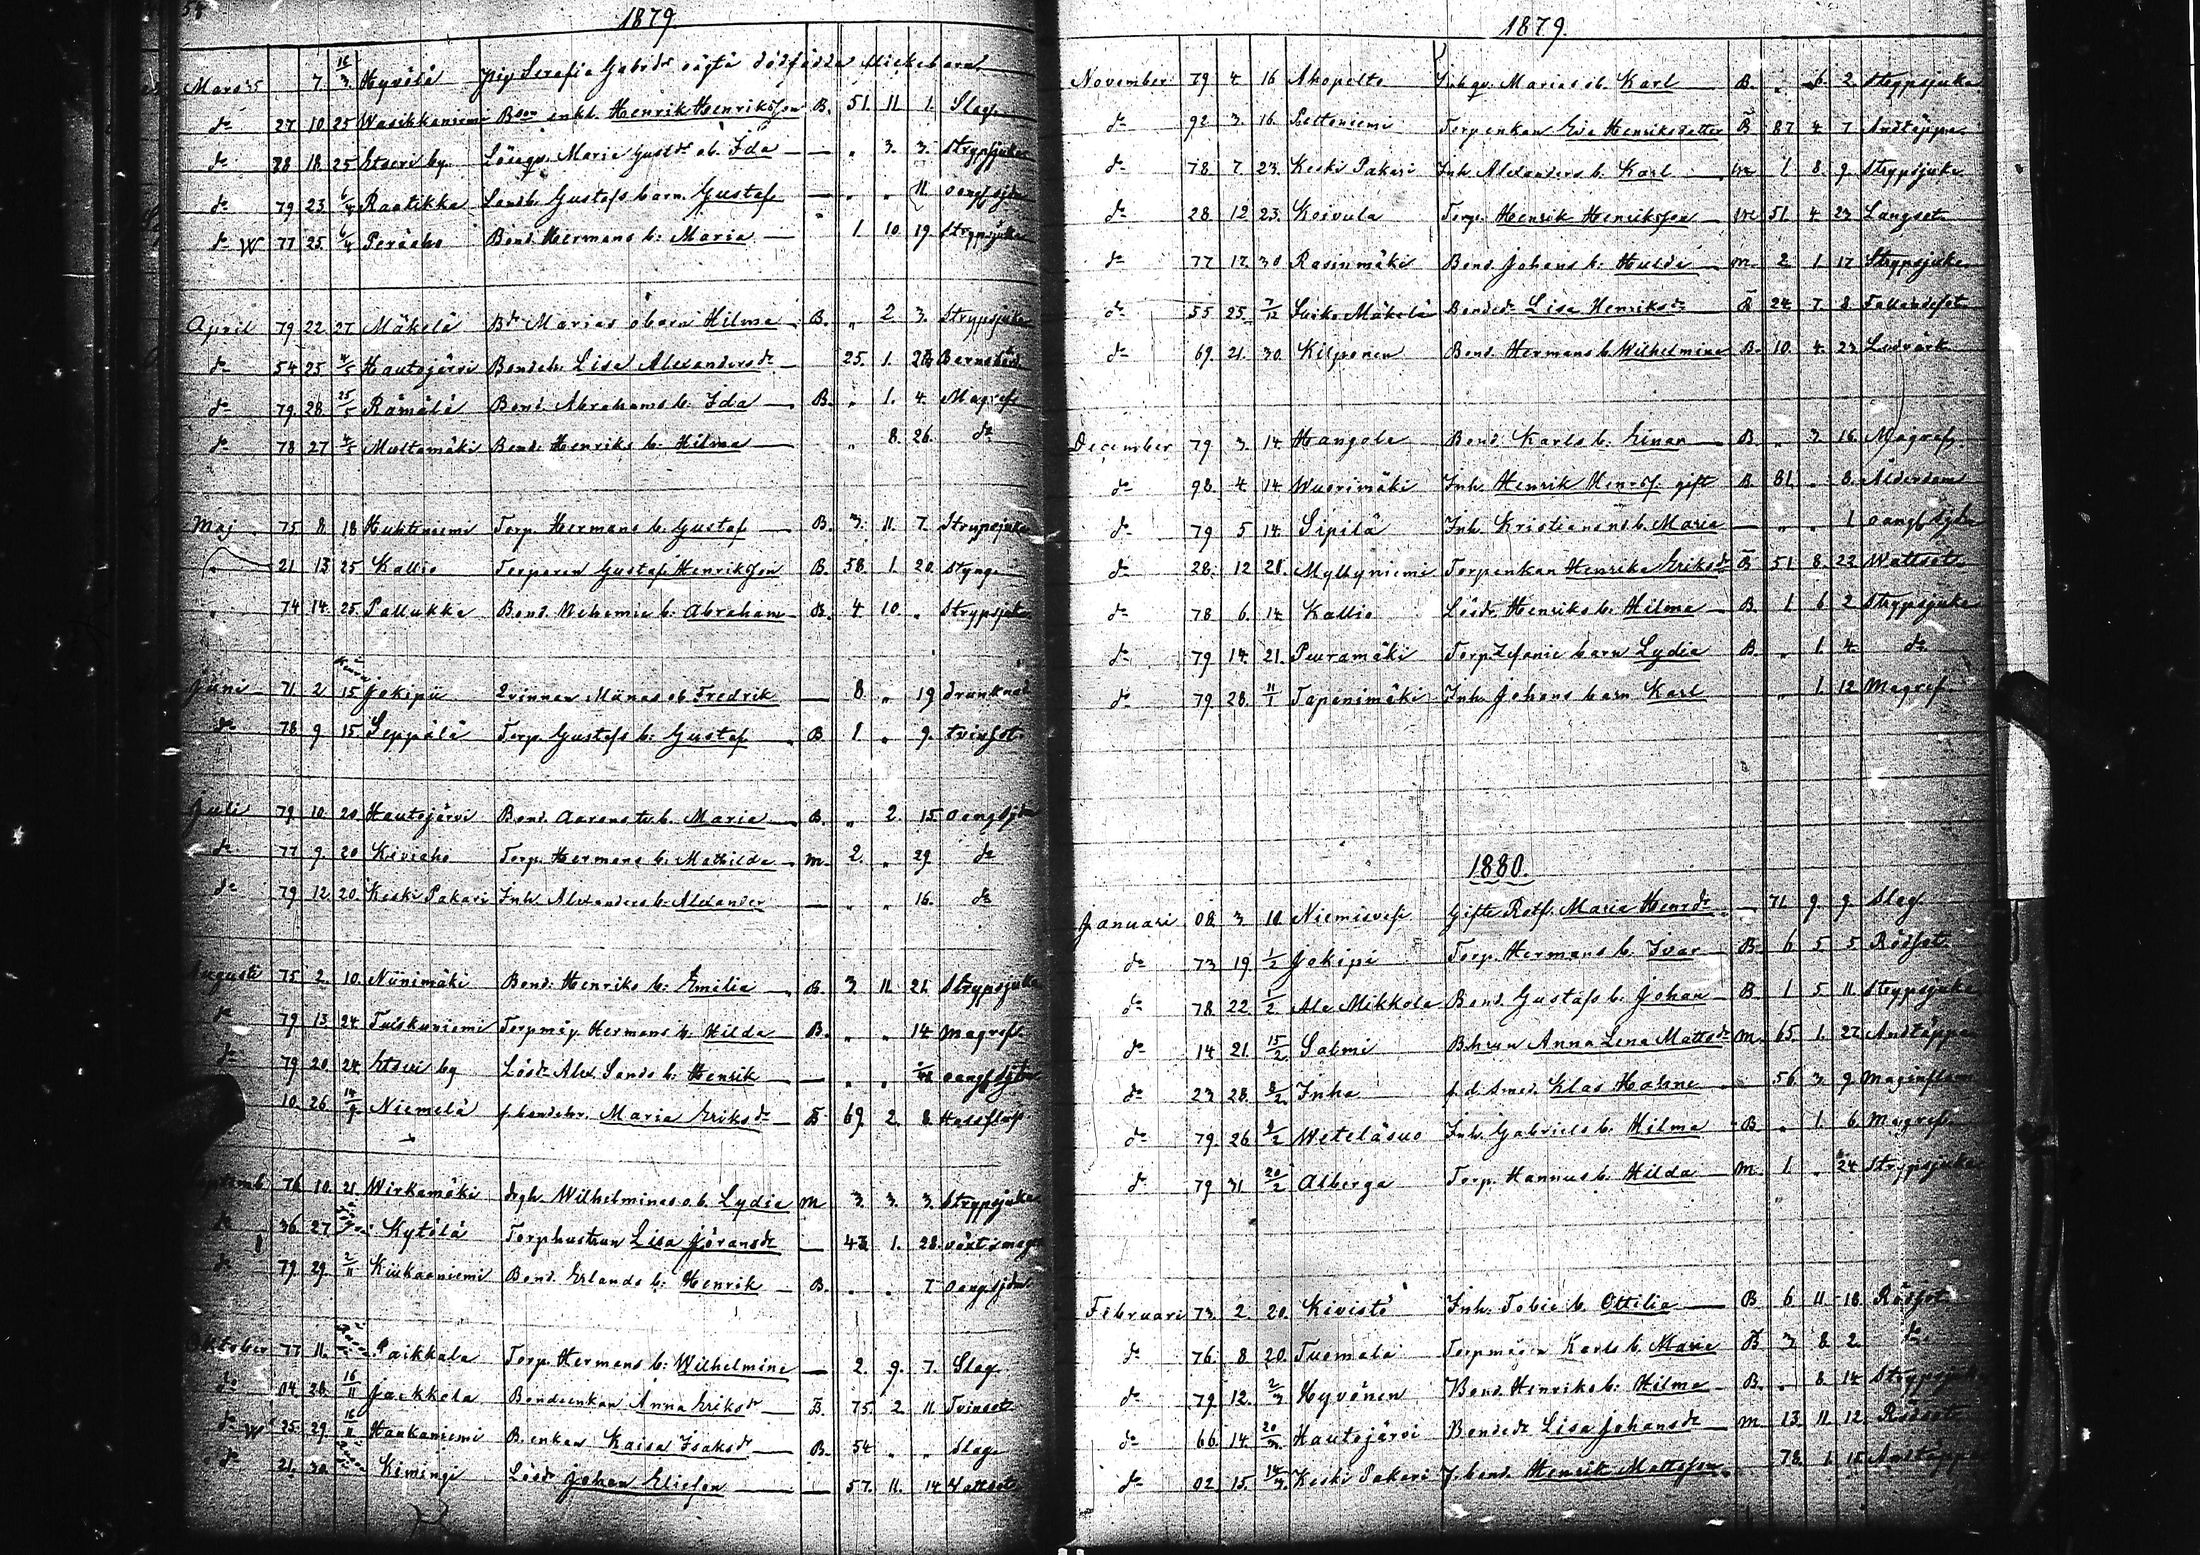 54
1879.
Mars 7 16/3 Hyvölä Pig Serafia Gabrdr oägta dödfödda flickebarn
do 27 10 25 Wasikkaniemi enkl. Henrik Henriksson B. 51. 11 1. Slag
do 78 18 25 by. Maria Gustdr ob. Ida — „ 3. 3. Strypsjuka
do 79 23 6/4 Raatikka Gustafs barn Gustaf — „ „ 11 oangf sjdm
do W 77 25 6/4 Peräaho Bond. Hermans b: Maria — 1 10 19 Strypsjuka
April 79 22 27 Mäkelä Marias ob Hilma B. „ 2 3. Strypsjuka
do 54 25 4/5 Hautojärvi Bondeh. Lisa Alexandersdr 25. 1. Barnsbörd
do 79 28 25/5 Rämälä Bond. Abrahams b. Ida B. „ 1. 4. Magref
do 78 27 4/5 Multamäki Bond. Henriks b: Hilma „ 8. 26. do
Maj 75. 8 18 Huhtiniemi Torp. Hermans b: Gustaf B. 3. 11. 7. Strypsjuka
„ 21 13 25 Kallio Torparen Gustaf Henriksson B. 58. 1. 20. Styng
„ 74 14. 25. Pallukka Bond. Nehemia b: Abraham B. 4 10. „ Strypsjuka
Juni 71 2 15 Jokipii Qvinnan Minas ob Fredrik — 8. „ 19 drunknat
do 78 9 15 Seppälä Torp. Gustafs b: Gustaf B 1 „ 9. tvinsot
Juli 79 10. 20 Hautojärvi Bond. Aarons b. Maria B. „ 2. 15 oangsjdm
do 77 9. 20 Kiviaho Torp. Hermans b: Mathilda m. 2. „ 29 do
do 79 12 20 Keski Pakari Inh. Alexanders b: Alexander — „ „ 16. do
Augusti 75. 2. 10. Niinimäki Bond. Henriks b: Emilia B. 3. 11. 21. Strypsjuka
do 79 13 24 Tuiskuniemi Torpmåg. Hermans b: Hilda B. „ „ 14 magref.
do 79 20 24 by Lösdr Alex. Sands b: Henrik — „ „ oangf sjdm
10. 26 14/9 Niemelä f. bondehr. Maria Eriksdr B 69. 2. 8.
76 10. 21 Wirkamäki Wilhelminas o.b. Lydia m 3. 3. 3. Strypsjuka
do 36 27 Kytölä Torphustrun Lisa Göransdr — 43. 1. 28.
do 79. 29. 2/11 Kiukaaniemi Bond. Erlands b: Henrik B. „ „ 7 oangsjdm
Oktober 77 11. Paikkala Torp. Hermans b: Wilhelmina — 2. 9. 7. Slag
do 04 28 16/11 Jaakkola Bondeenkan Anna Eriksdr B. 75. 2 11 Tvinsot
do W 25. 29. 16/11 Haakaniemi B.enkan Kaisa Isaksdr B. 54 „ „ Slag
do 21. 30 Kimingi Lösdr Johan Eliesson — 57. 11. 14 Wattsot
1879.
November 79 4 16 Ahopelto Inhqv. Marias ob. Karl B. „ 6 2. Strypsjuka
do 92 3. 16. Peltoniemi Torpenkan Eva Henriksdotter B 87 4 7 Andtäppa
do 78 7 23. Keski Pakari Inh. Alexanders b. Karl m 1 8. 9. Strypsjuka
do 28. 12 23. Koivula Torp. Henrik Henriksson m 51. 4 23 Lungsot
do 77 17. 30 Rasinmäki Bond. Johans b: Hulda m. 2 1 17 Strypsjuka
do 55 25. 7/12 Mäkelä Bondedr Lisa Henriksdr B 24. 7. 8 Fallandesot
do 69. 21. 30. Kilponen Bond. Hermans b. Wilhelmina B. 10. 4. 23 Ledvärk
December 79 3. 14. Hangola Bond. Karls b. Einar B „ 3 16. Magref.
do 98. 4 14 Wuorimäki Inh. Henrik gift B. 81. „ 8. Ålderdom
do 79 5 14. Sipilä Inh. Kristians b. Maria — „ „ 1 oangf sjdm
do 28. 12 21. Myllyniemi Torpenkan Henrika Eriksdr B 51 8 23 Wattsot
do 78 6. 14. Kallio Lösdr Henriks b: Hilma B. 1 6 2 Strypsjuka
do 79 14. 21. Peuramäki Torp. Zefanie barn Lydia B. „ 1 4. do
do 79. 28. 11/1 Tapenimäki Inh. Johans barn Karl „ 1 12 Magref
1880.
Januari 08. 3. 18. Niemisvesi Gifta Rotf. Maria Henrdr — 71 9. 9. Slag.
do 73 19 1/2 Jokipi Torp. Hermans b. Ivar B. 6 5 5 Rödsot
do 78 22 1/2 Ala Mikkola Bond. Gustafs b. Johan B 1 5 11 Strypsjuka
do 14 21. 15/2 Salmi Bhrun Anna Lena Mattsdr m. 65. 1. 27 Andtäppa
do 23 28. 8/2 Inha f.d. Smed. Klas 56 3. 9 Maginflam
do 79. 26 8/2 Weteläsuo Inh. Gabriels b. Hilma B „ 1. 6 Magref.
do 79 31 20/2 Alberga Torp. Hannus b. Hilda m. 1. „ 24 Strypsjuka
Februari 73. 2. 20. Kivistö Inh. Tobie b. Ottilia B 6 11 18 Rödsot
do 76. 8 20. Tuomela Torpmågen Karls b. Maria B 3 8 2. do
do 79. 12. 2/3 Hyvönen Bond. Henriks b: Hilma B. „ 8. 14 Strypsjuka
do 66. 14 20/3 Hautojärvi Bondedr Lisa Johansdr m. 13. 11. 12. Rödsot
do 02. 15. 14/3 Keski Pakari f. bond. Henrik Mattsson 78. 1. 15 Andtäppa